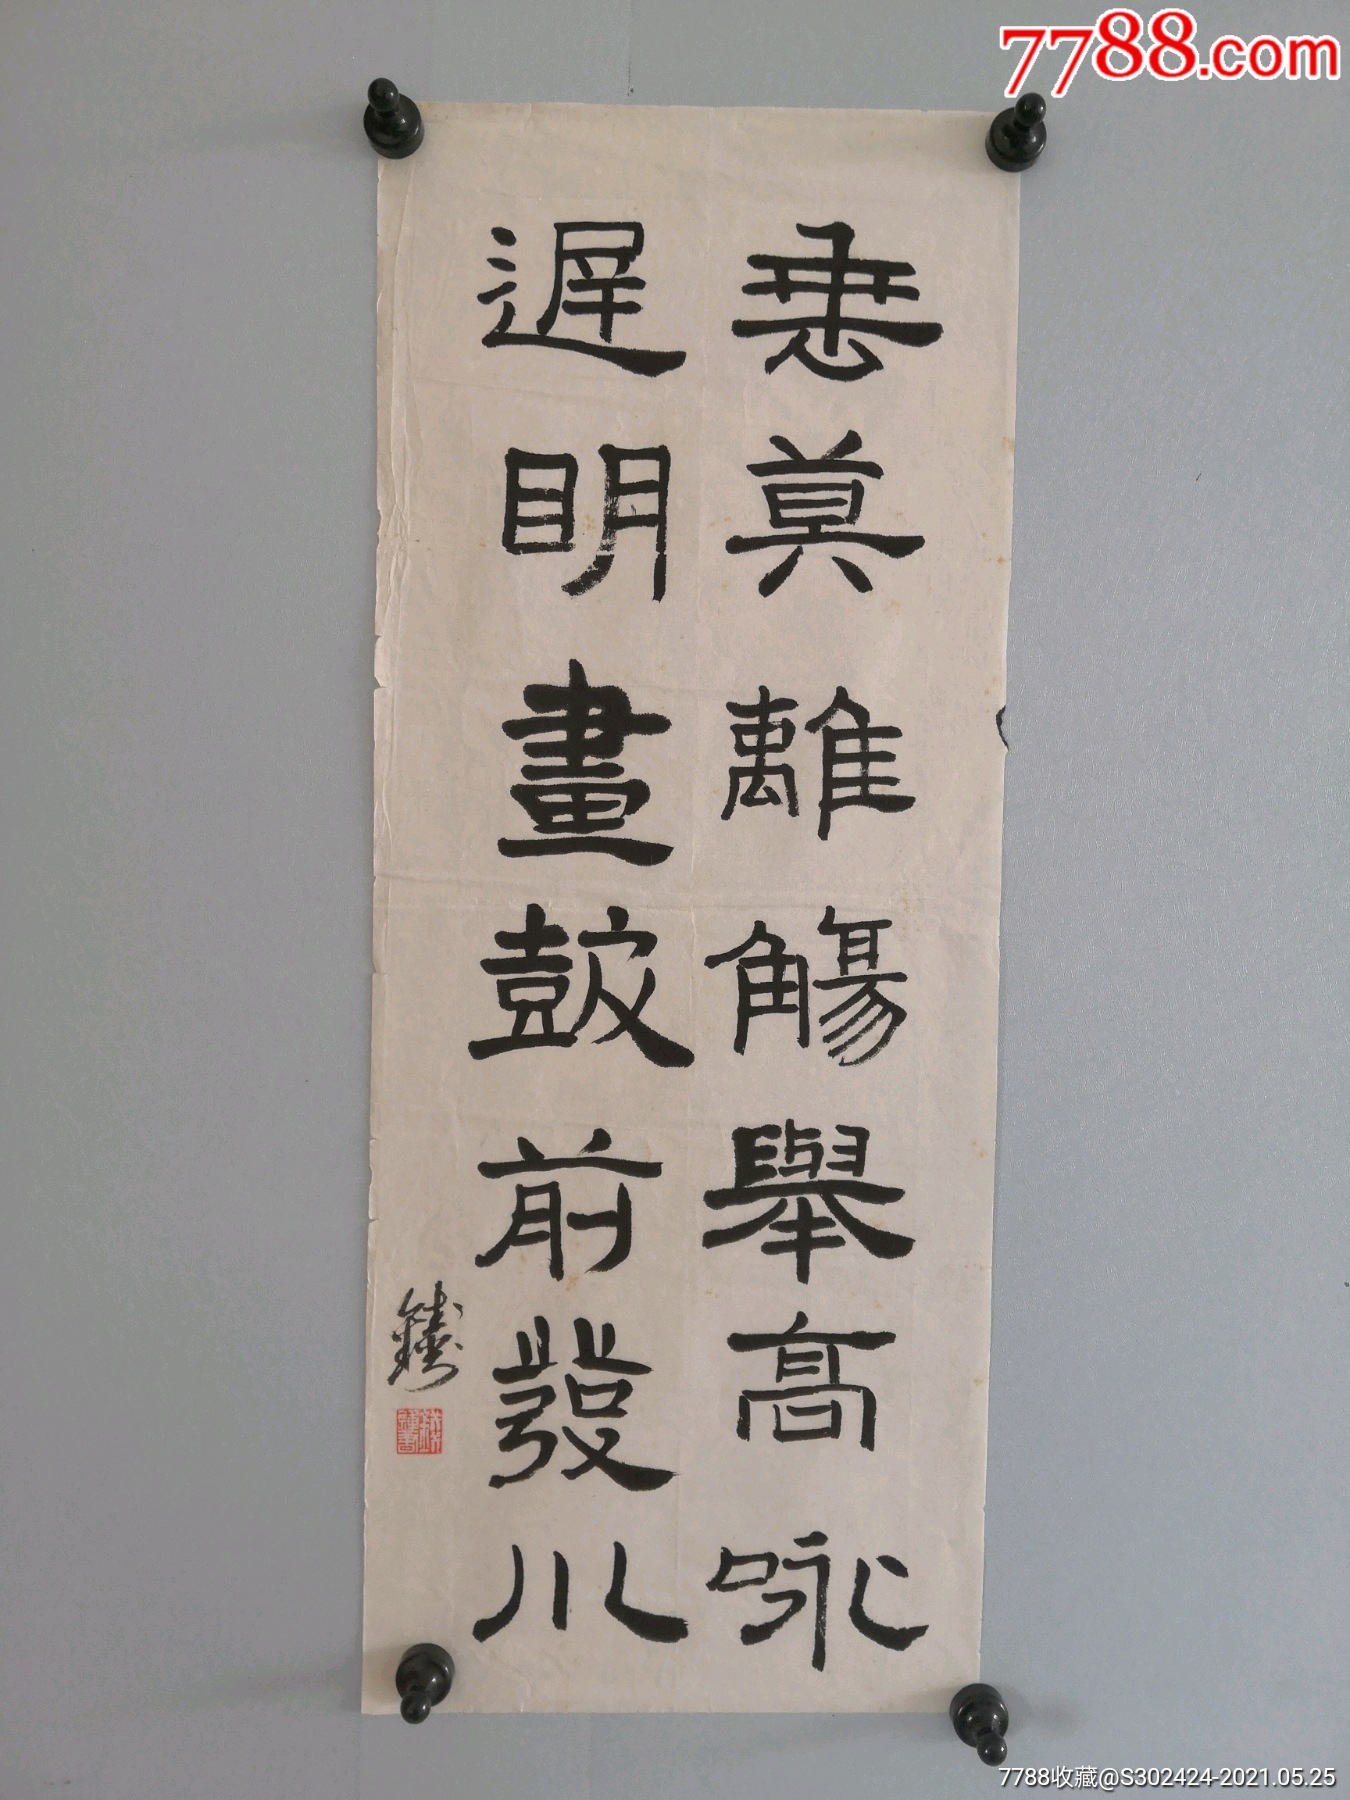 7788.com
垂莫離觴舉高咏
遲明畫鼓前發川
錢鍾書
7788收藏@S302424-2021.05.25